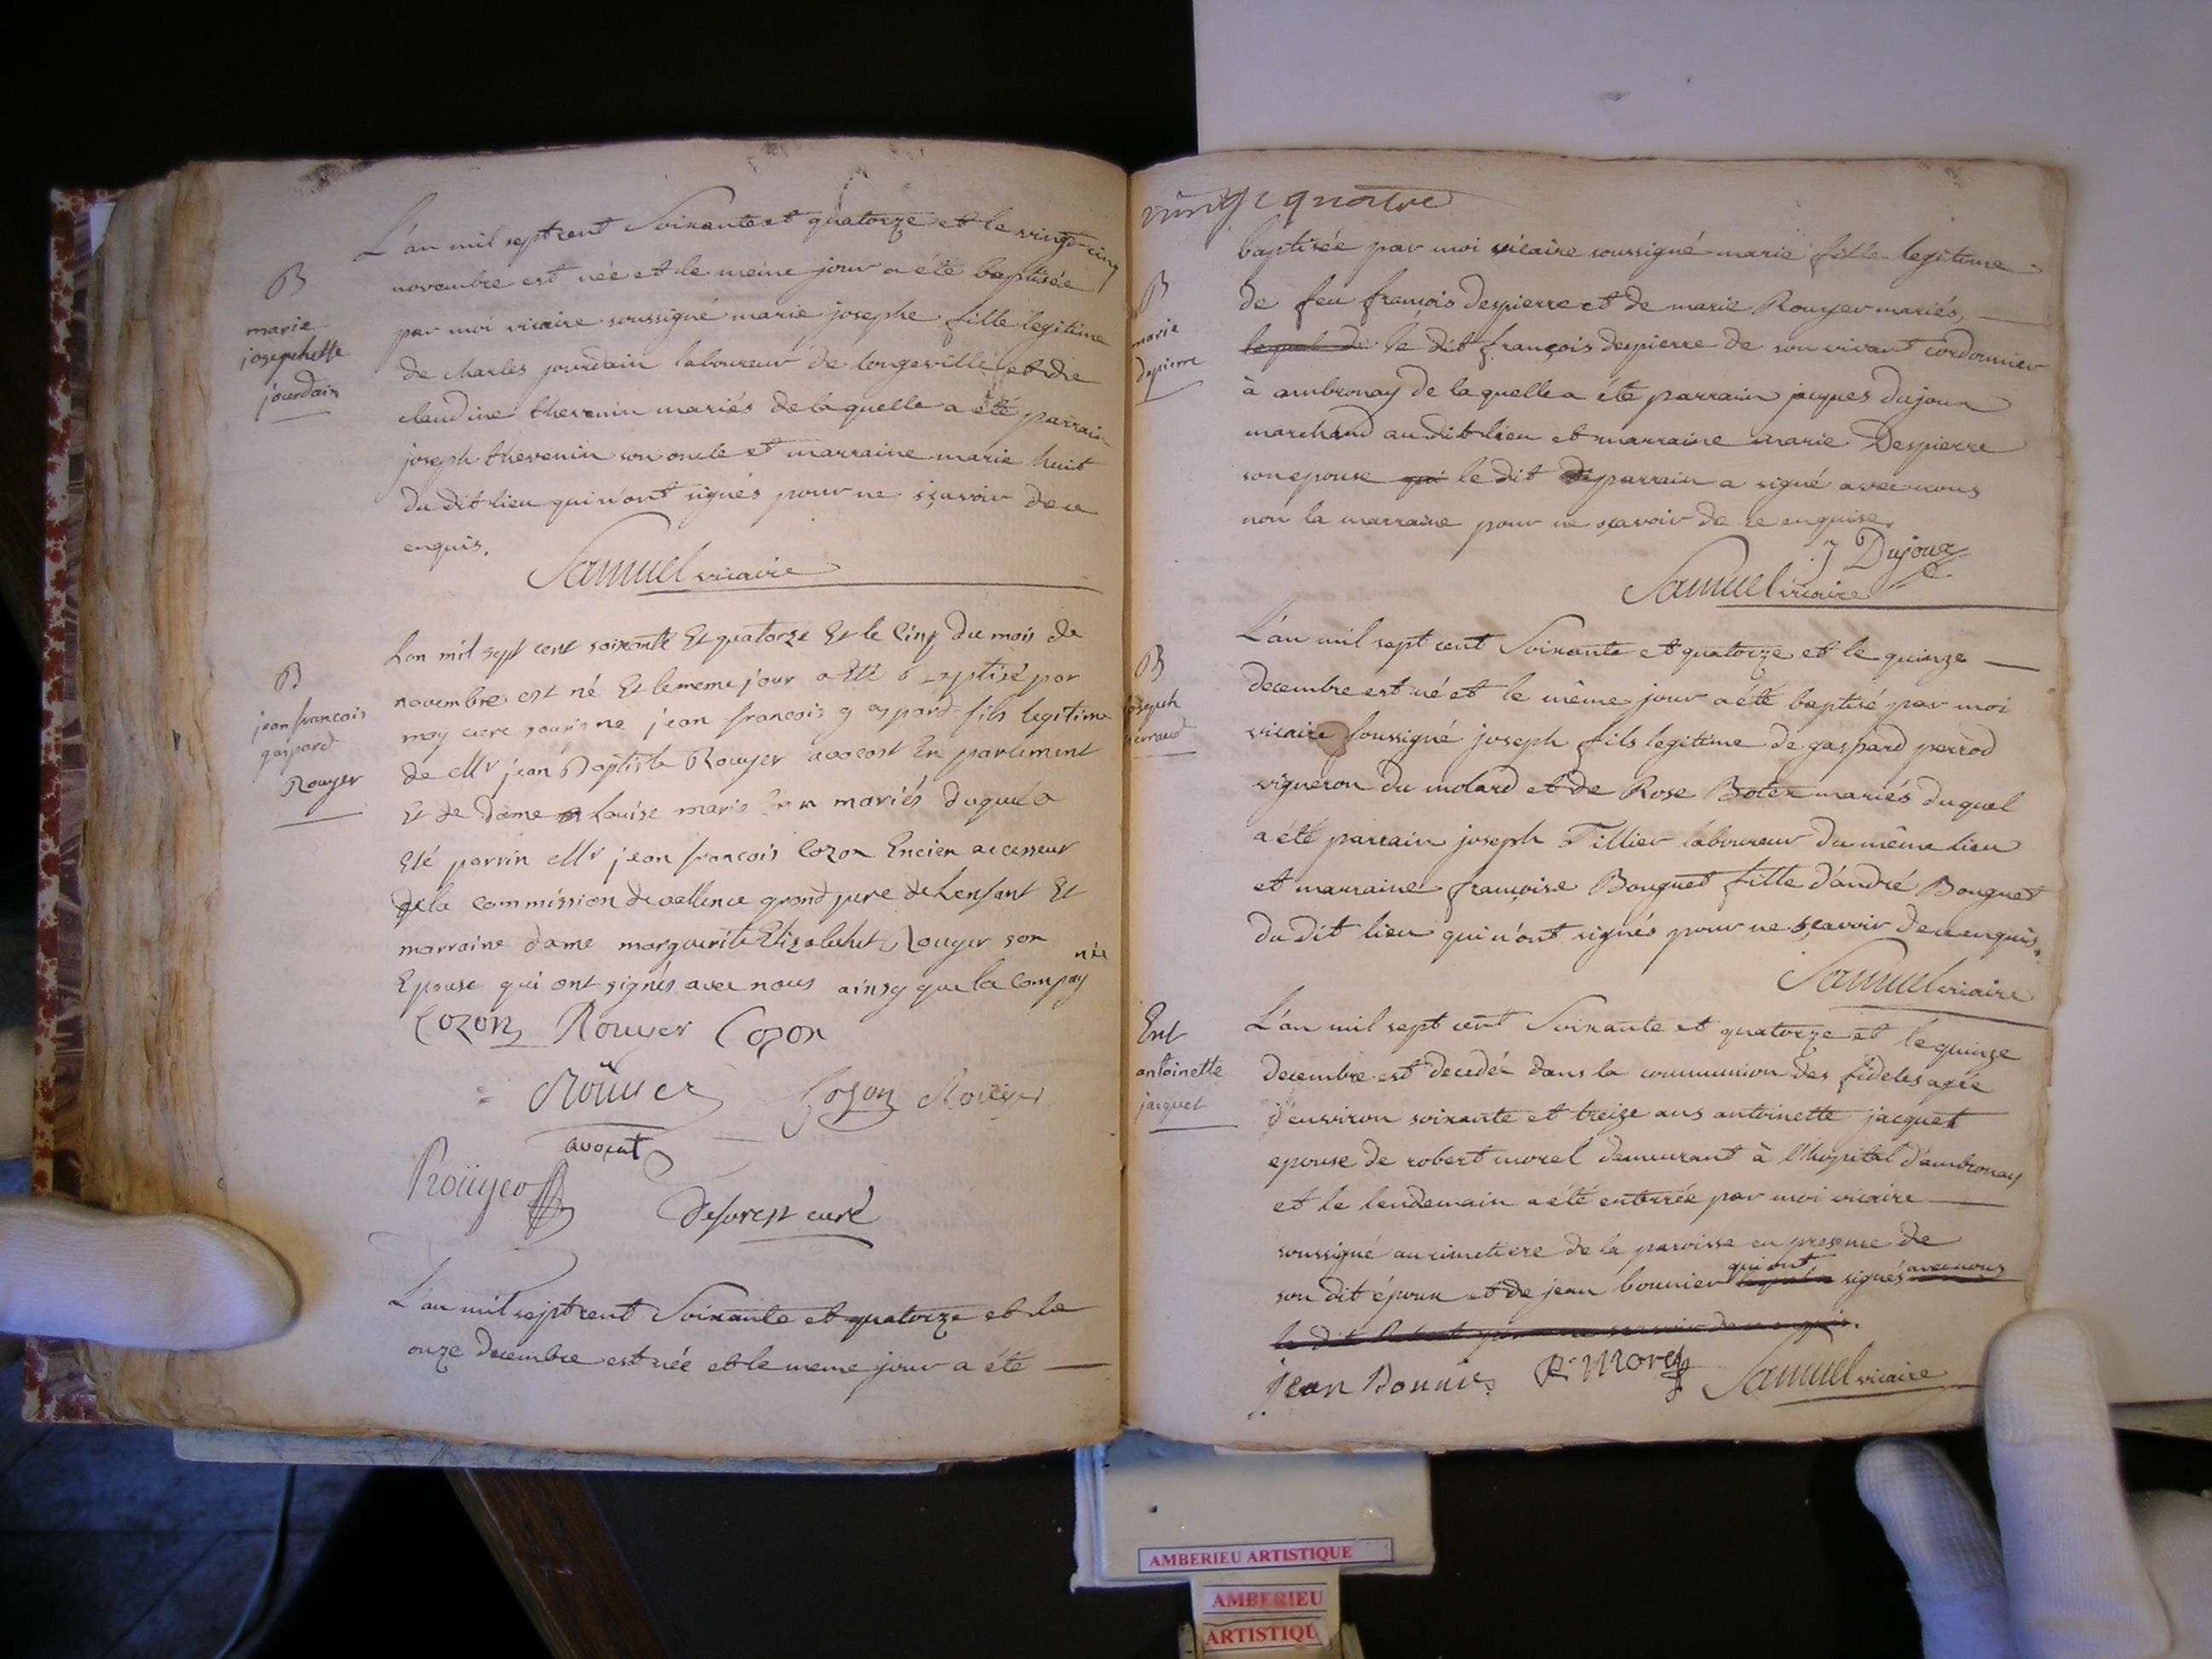 B
marie
josephette
jourdain
L'an mil sept cent Soixante et quatorze et le vingt-cinq
novembre est née et le meme jour a été baptisée
par moi vicaire soussigné marie josephe fille legitime
de Charles jourdain laboureur de longeville et de
claudine thevenin mariés de laquelle a été parrain
joseph thevenin son oncle et marraine marie huit
du dit lieu qui n'ont signés pour ne sçavoir de ce
enquis.
Samuel vicaire
B
jean francois
gaspard
Rouyer
L'an mil sept cent soixante Et quatorze Et le Cinq du mois de
novembre est né Et le meme jour a été baptisé par
moy curé soussigné jean francois gaspard fils legitime
de Mr jean Baptiste Rouyer avocat En parlement
Et de dame Louise marie mariés duquel a
Eté parrin Mr jean francois Cozon Encien accesseur
de la commission de vallence grand pere de Lenfant Et
marraine dame marguerite Elizabeht Rouyer son
Epouse qui ont signés avec nous ainsy que la compagnée
Cozon Rouyer Cozon
Roüyer Cozon Roüyer
avocat
Roüyer deforest curé
L'an mil sept cent Soixante et quatorze et le
onze decembre est née et le meme jour a été
vingt quatre
B
marie
depierre
baptisée par moi vicaire soussigné marie fille legitime
de feu françois Despierre et de marie Rouyer mariés,
lequel de le dit françois despierre de son vivant cordonnier
à ambronay de laquelle a été parrain jacques dujoux
marchand au dit lieu et marraine marie Despierre
son epouse qui le dit parrain a signé avec nous
non la marraine pour ne sçavoir de ce enquise.
J Dujoux
Samuel vicaire
B
joseph
perraud
L'an mil sept cent Soixante et quatorze et le quinze
decembre est né et le même jour a été baptisé par moi
vicaire soussigné joseph fils legitime de gaspard perrod
vigneron du molard et de Rose Boter mariés duquel
a été parrain joseph Tillier laboureur du même lieu
et marraine françoise Bouguet fille d'andré Bouguet
du dit lieu qui n'ont signés pour ne sçavoir de ce enquis.
Samuel vicaire
Ent
antoinette
jacquet
L'an mil sept cent Soixante et quatorze et le quinze
decembre est decedée dans la communion des fideles agée
d'environ soixante et treize ans antoinette jacquet
epouse de robert morel demeurant à l'hôpital d'ambronay
et le lendemain a été enterrée par moi vicaire
soussigné au cimetiere de la paroisse en presence de
son dit époux et de jean bonnier qui ont signés avec nous
jean Bonnier R. Morel Samuel vicaire
AMBERIEU ARTISTIQUE
AMBERIEU
ARTISTIQU